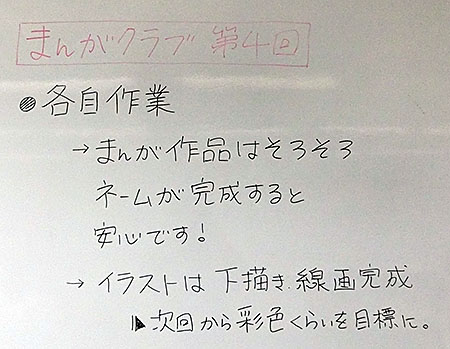 まんがクラブ 第4回
●各自作業
→まんが作品はそろそろ
ネームが完成すると
安心です!
→イラストは下描き.線画完成
▶次回から彩色くらいを目標に。